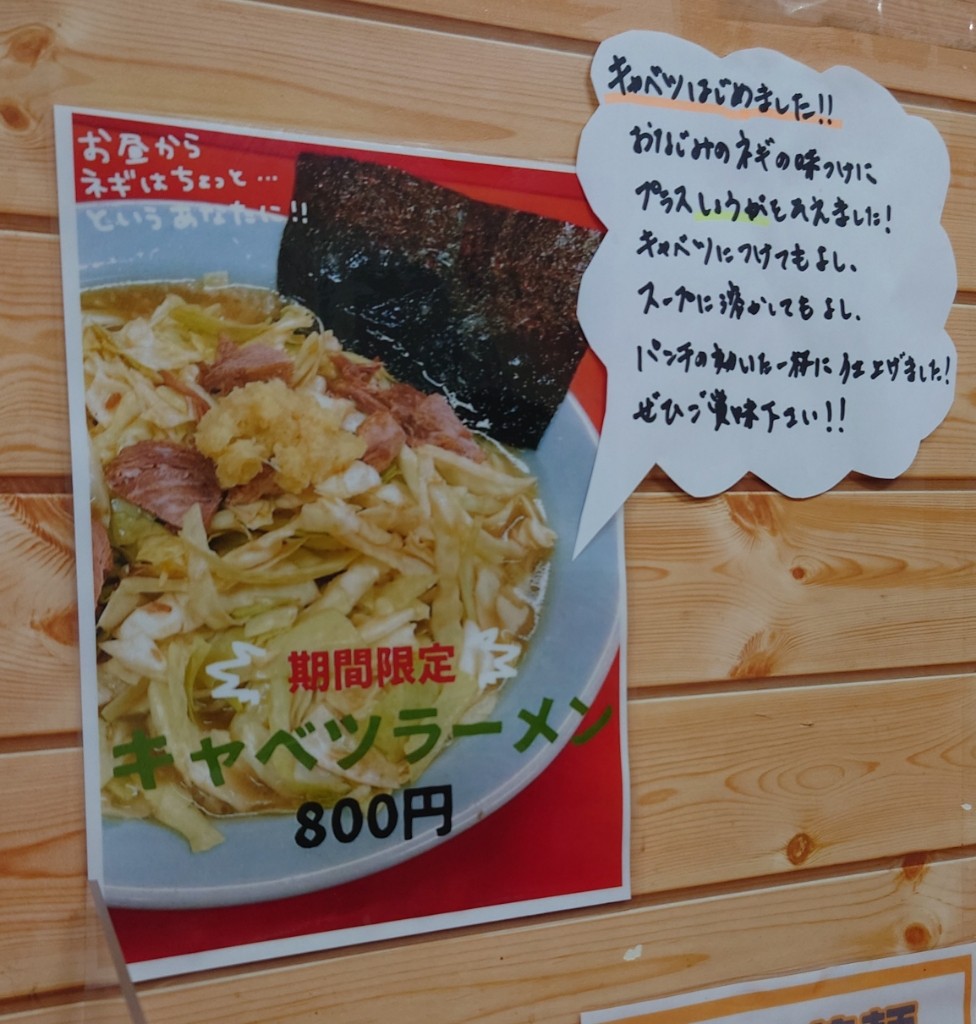 お昼から
ネギはちょっと…
というあなたに!!
期間限定
キャベツラーメン
800円
キャベツはじめました!!
おなじみのネギの味つけに
プラスしょうがをあえました!
キャベツにつけてもよし、
スープに溶かしてもよし、
パンチの効いた一杯に仕上げました!
ぜひご賞味下さい!!